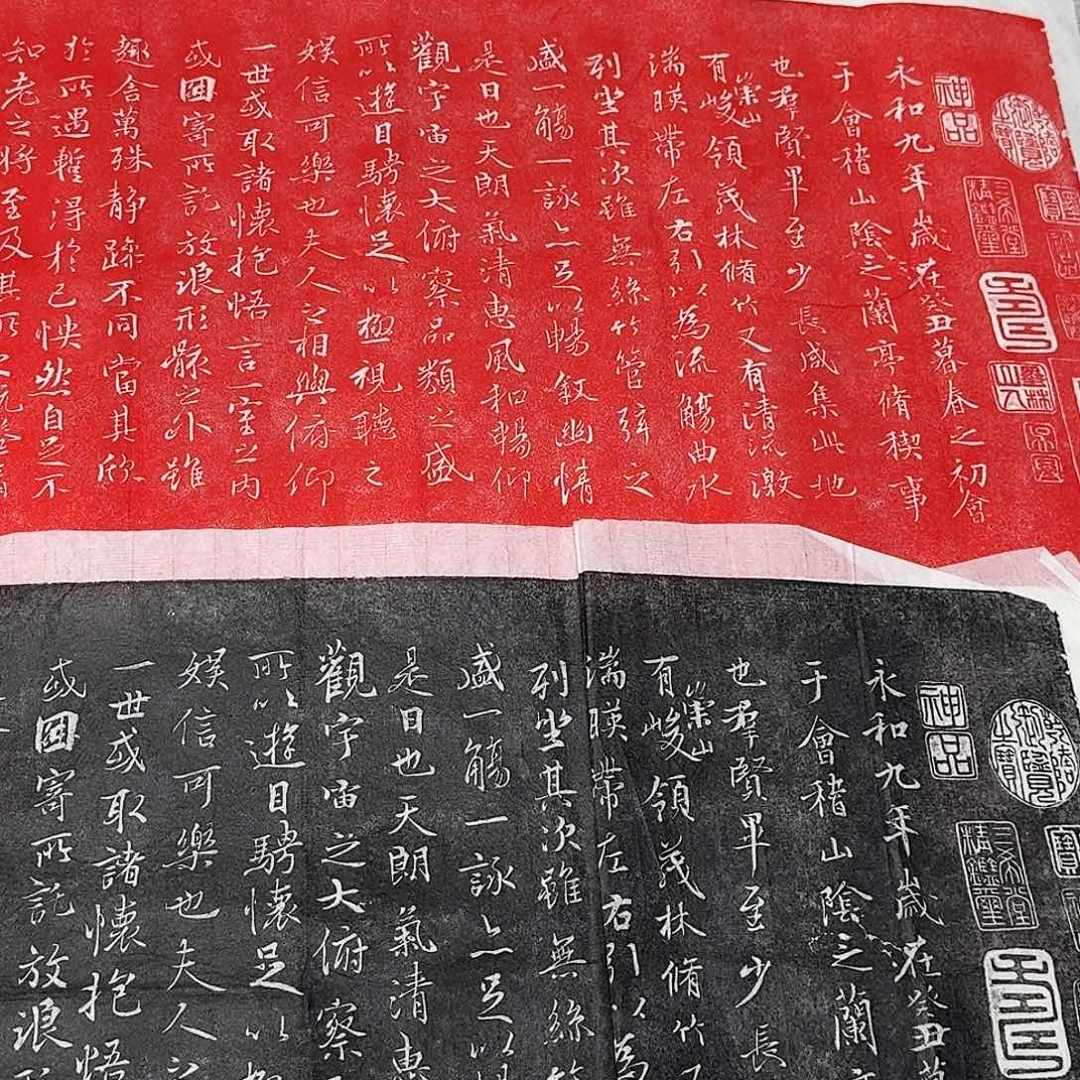 神品
乾隆御覽之寶
三希堂精鑑璽
永和九年歲在癸丑暮春之初會
于會稽山陰之蘭亭脩稧事
也羣賢畢至少長咸集此地
有崇山峻領茂林脩竹又有清流激
湍暎帶左右引以為流觴曲水
列坐其次雖無絲竹管弦之
盛一觴一詠亦足以暢敘幽情
是日也天朗氣清惠風和暢仰
觀宇宙之大俯察品類之盛
所以遊目騁懷足以極視聽之
娛信可樂也夫人之相與俯仰
一世或取諸懷抱悟言一室之內
或因寄所託放浪形骸之外雖
趣舍萬殊靜躁不同當其欣
於所遇蹔得於己怏然自足不
知老之將至及其所之既惓
神品
乾隆御覽之寶
三希堂精鑑璽
永和九年歲在癸丑暮
于會稽山陰之蘭亭
也羣賢畢至少長
有崇山峻領茂林脩竹又
湍暎帶左右引以為
列坐其次雖無絲竹
盛一觴一詠亦足以暢
是日也天朗氣清惠
觀宇宙之大俯察
所以遊目騁懷足以極
娛信可樂也夫人之
一世或取諸懷抱悟
或因寄所託放浪形